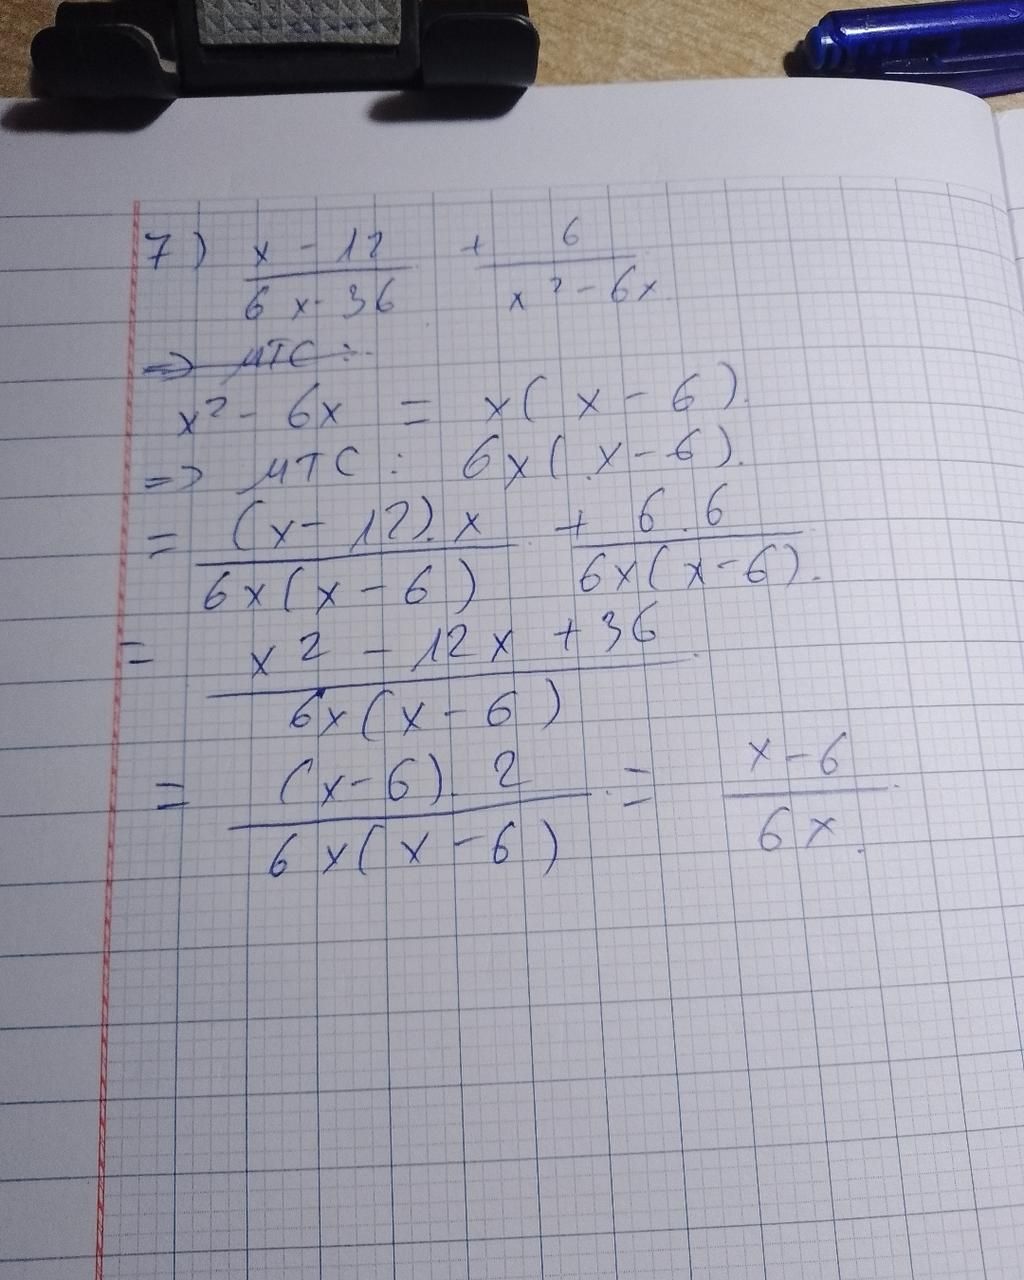 7) x - 12 / 6x - 36 + 6 / x² - 6x
=> MTC :
x² - 6x = x(x - 6).
=> MTC : 6x(x - 6).
= (x - 12).x / 6x(x - 6) + 6.6 / 6x(x - 6).
= x2 - 12x + 36 / 6x(x - 6)
= (x - 6).2 / 6x(x - 6) = x - 6 / 6x.